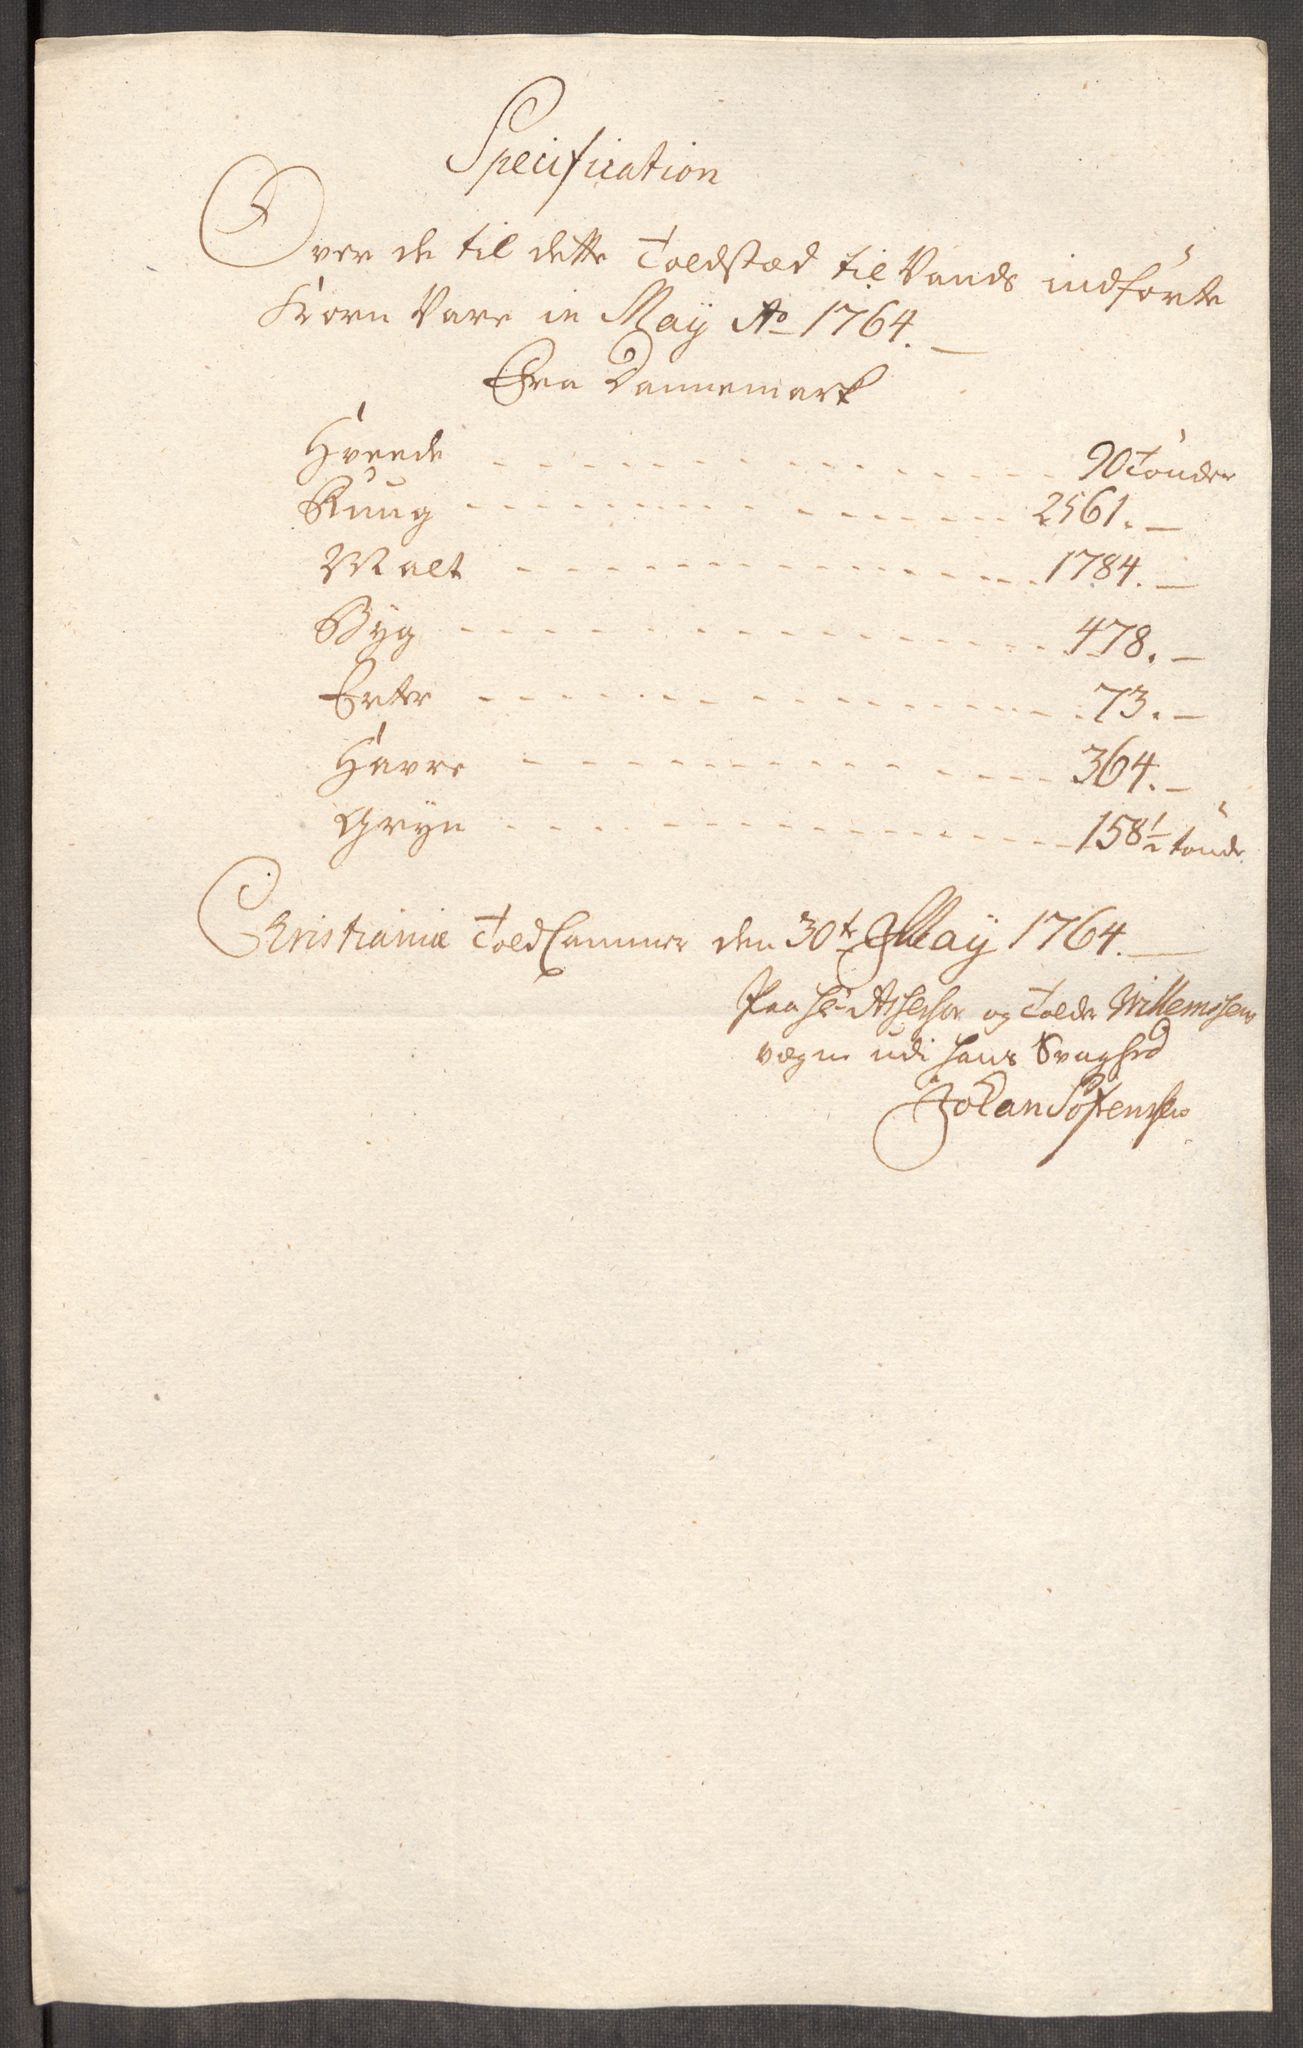 Specification
Over de til dette Toldstæd til Vands indførte
Korn Vare in Maÿ Ao 1764.
Fra Dannemark
Hveede - - - 90 Tønder
Ruug - - - 2561. -
Malt - - - 1784. -
Byg - - - 478. -
Erter - - - 73. -
Havre - - - 364. -
Gryn - - - 158 1/2 tønde
Christiania Told Cammer den 30te Maÿ 1764.
Paa Hr Assessor og Tolder Willemsens
vegne udi hans Svaghed
Johan